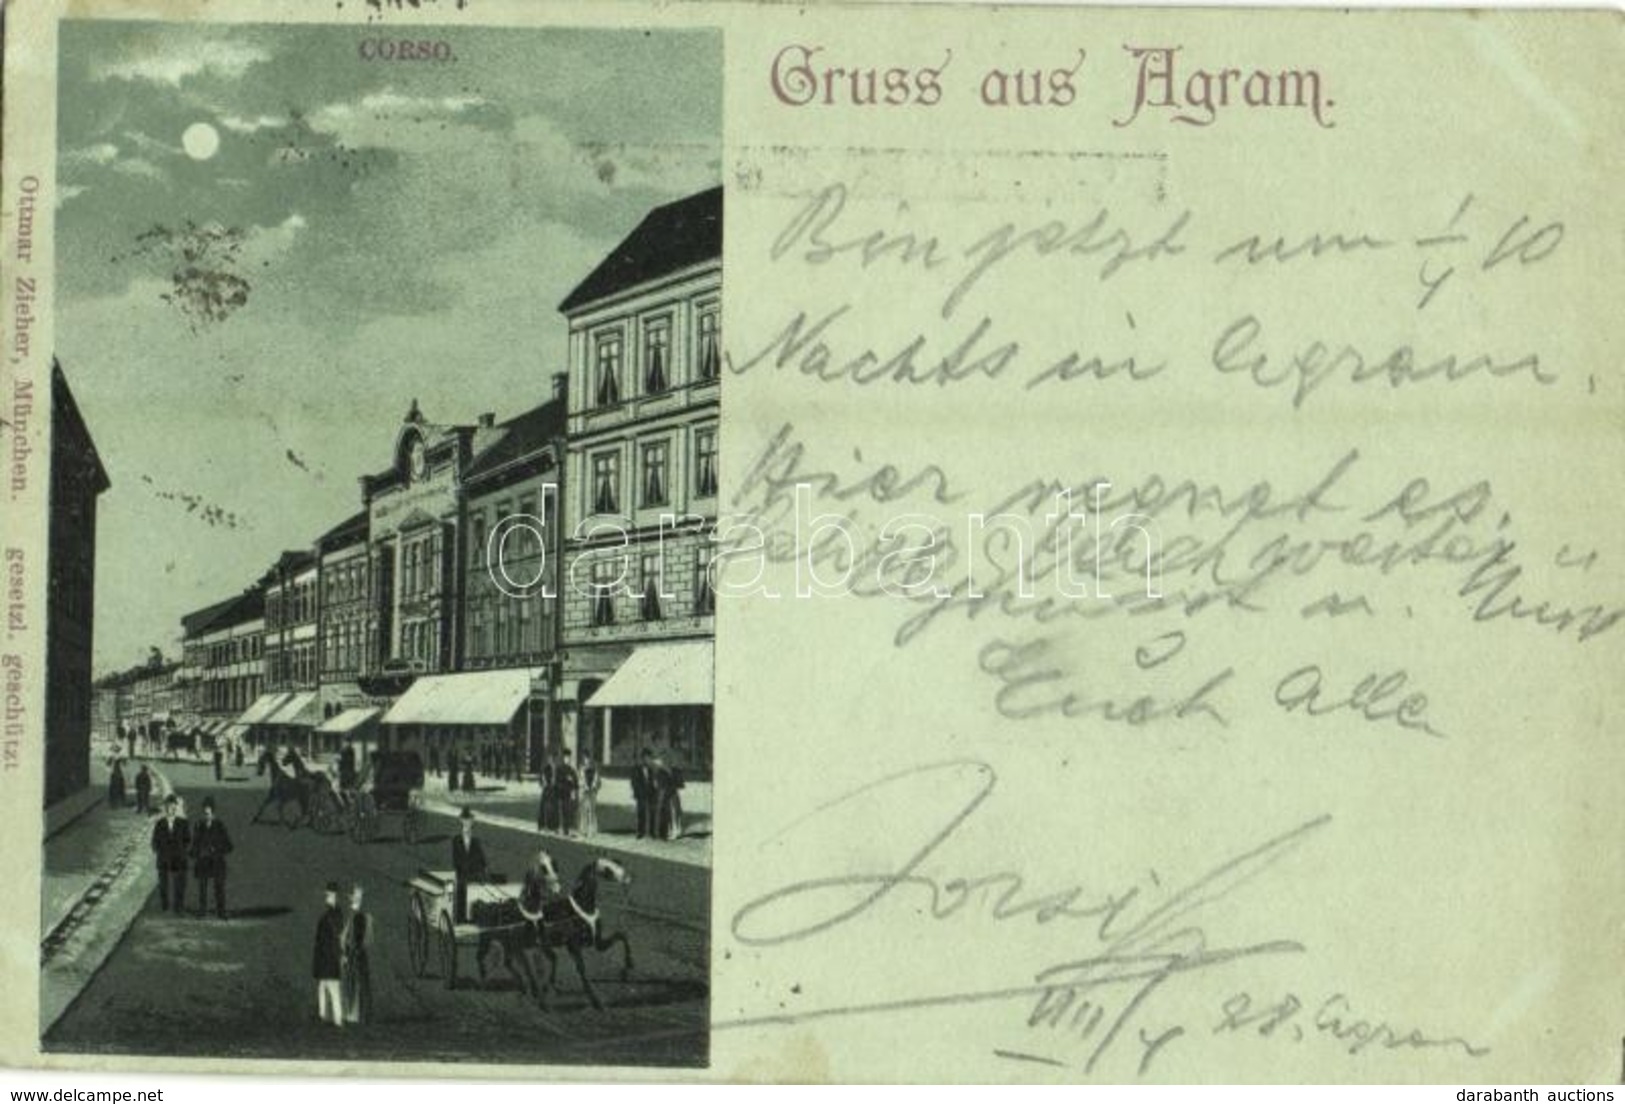 CORSO.
Gruss aus Agram.
Ottmar Zieher, München. gesetzl. geschützt
Bin jetzt um 1/4 10
Nachts in Agram.
Hier regnet es.
weiter u
u.
Euch Alle
28. Agram
darabanth
© www.delcampe.net
darabanth auctions